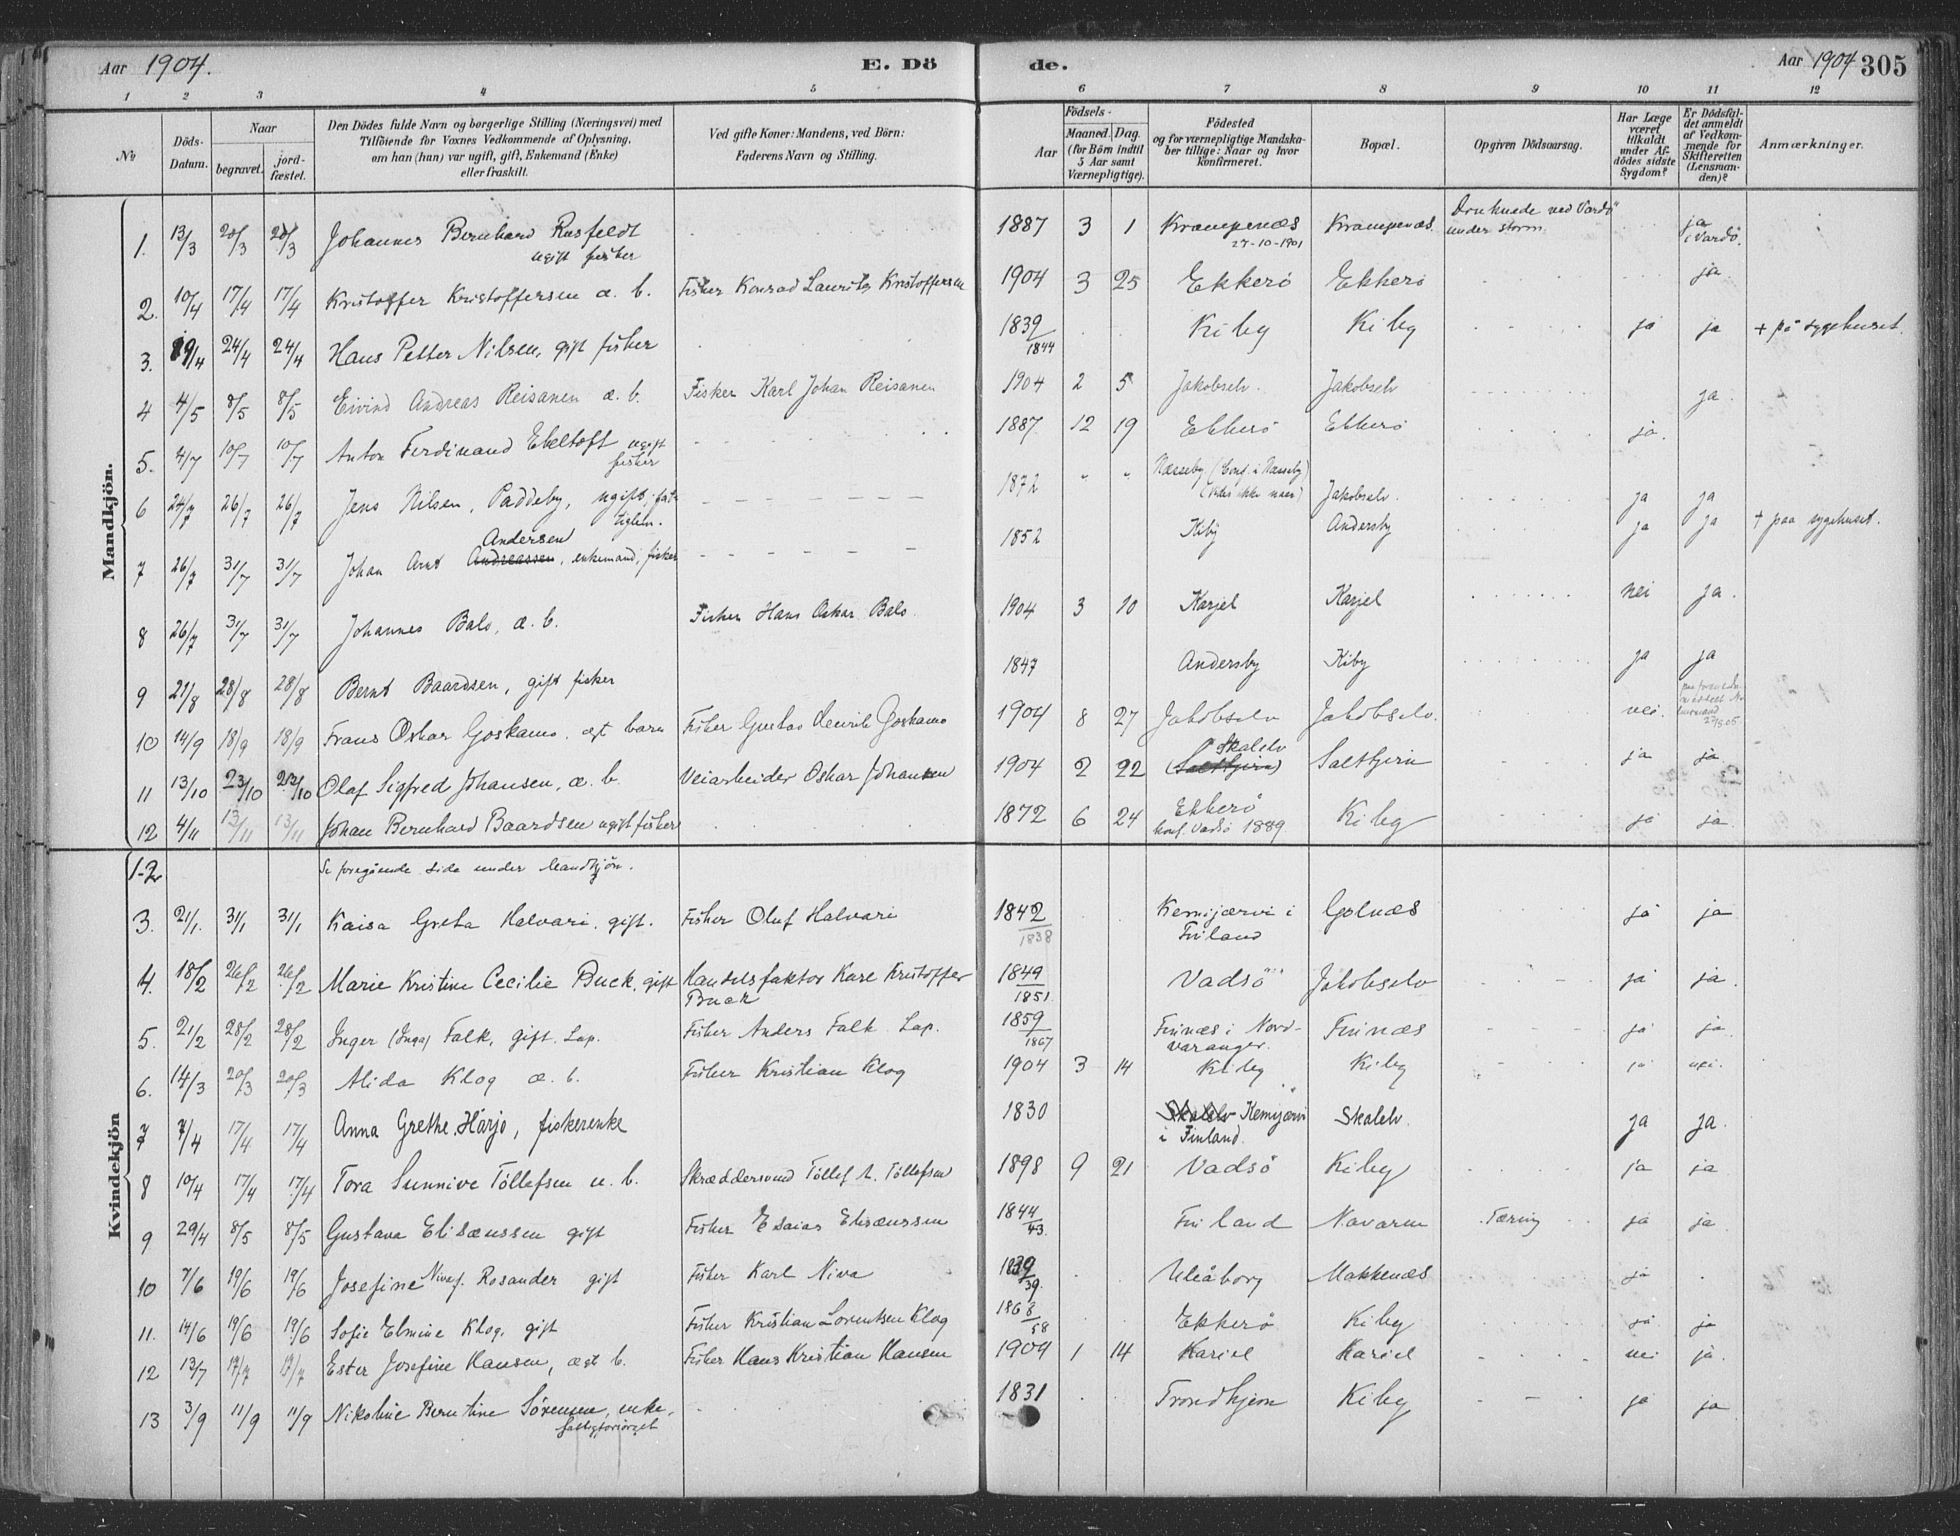 Aar 1904. E. Dö de. Aar 1904 305
1 2 3 4 5 6 7 8 9 10 11 12
No
Döds-Datum.
Naar
begravet.
jord-fæstet.
Den Dödes fulde Navn og borgerlige Stilling (Næringsvei) med
Tilföiende for Voxnes Vedkommende af Oplysning,
om han (hun) var ugift, gift, Enkemand (Enke)
eller fraskilt.
Ved gifte Koner: Mandens, ved Börn:
Faderens Navn og Stilling.
Födsels-
Aar
Maaned. Dag.
(for Börn indtil
5 Aar samt
Værnepligtige).
Födested
og for værnepligtige Mandska-
ber tillige: Naar og hvor
konfirmeret.
Bopæl.
Opgiven Dödsaarsag.
Har Læge
været
tilkaldt
under Af-
dödes sidste
Sygdom?
Er Dödsfal-
det anmeldt
af Vedkom-
mende for
Skifteretten
(Lensman-
den)?
Anmærkninger.
Mandkjön.
1. 13/3 20/3 20/3 Johannes Bernhard Rusfeldt ugift fisker 1887 3 1 Krampenæs 27-10-1901 Krampenæs. Druknede ved Vardö under storm ja i Vardö.
2. 10/4 17/4 17/4 Kristoffer Kristoffersen æ. b. Fisker Konrad Laurits Kristoffersen 1904 3 25 Ekkerö Ekkerö ja.
3. 19/4 24/4 24/4 Hans Petter Nilsen, gift fisker 1839/1844 Kiby Kiby ja ja + på sygehuset.
4 4/5 8/5 8/5 Eivind Andreas Reisanen æ. b. Fisker Karl Johan Reisanen 1904 2 5 Jakobselv. Jakobselv ja.
5. 4/7 10/7 10/7 Anton Ferdinand Ebeltoft ugift fisker 1887 12 19 Ekkerö Ekkerö ja.
6 24/7 26/7 26/7 Jens Nilsen, Paddeby, ugift, fat-tiglem. 1872 " " Næsseby (Conf. i Næsseby) Jakobselv. ja ja
7 26/7 31/7 31/7 Johan Arnt Andreassen Andersen, enkemand, fisker 1852 Kiby Andersby ja ja + paa sygehuset.
8 26/7 31/7 31/7 Johannes Balo, æ. b. Fisker Hans Oskar Balo. 1904 3 10 Karjel Karjel nei ja.
9 21/8 28/8 28/8 Bernt Baardsen, gift fisker 1847 Andersby Kiby ja ja
10 14/9 18/9 18/9 Frans Oskar Goskamo. ægt barn Fisker Gustav Henrik Goskamo 1904 8 27 Jakobselv Jakobselv. nei.
11 13/10 23/10 23/10 Olaf Sigfred Johansen, æ. b. Veiarbeider Oskar Johansen 1904 2 22 (Saltfjern) Skalelv Saltfjern ja ja
12 4/11 13/11 13/11 Johan Bernhard Baardsen ugift fisker 1872 6 24 Ekkerö konf. Vadsö 1889 Kiby ja ja.
Kvindekjön
1-2 Se foregående side under Mandkjön.
3. 21/1. 31/1 31/1 Kaisa Greta Halvari. gift. Fisker Oluf Halvari 1842/1838 Kemijærvi i Finland Golnæs ja ja
4. 18/2 26/2 26/2 Marie Kristine Cecilie Buck. gift Handelsfaktor Karl Kristoffer Buck 1849/1851. Vadsö Jakobselv ja ja.
5. 21/2 28/2 28/2 Inger (Inga) Falk, gift. Lap. Fisker Anders Falk Lap. 1859/1867 Finnæs i Nord-varanger. Finnæs ja ja.
6. 14/3 20/3 20/3 Alida Klog æ. b. Fisker Kristian Klog 1904 3 14 Kiby Kiby ja nei.
7 7/4 17/4 17/4 Anna Grethe Harjo, fiskerenke 1830 Skalelv Kemijærvi i Finland. Skalelv. ja ja.
8 10/4 17/4 17/4 Tora Sunnive Töllefsen u. b. Skræddersvend Töllef A. Töllefsen 1898 9 21 Vadsö Kiby ja ja
9 29/4 8/5 8/5 Gustava Elisæussen gift Fisker Esaias Elisæussen 1844/43. Finland Navaren Tæring ja ja
10 7/6 19/6 19/6 Josefine Niva f. Rosander gift Fisker Karl Niva 1839/39. Uleåborg Makkenæs ja
11. 14/6 19/6 19/6 Sofie Elmine Klog. gift Fisker Kristian Lorentsen Klog 1868/58 Ekkerö Kiby ja ja
12 13/7 17/7 17/7 Ester Josefine Hansen, ægt b. Fisker Hans Kristian Hansen 1904 1 14 Kariel Kariel nei ja.
13 3/9 11/9 11/9 Nikoline Berntine Sörensen, enke, fattigforsörget 1831 Trondhjem Kiby ja ja